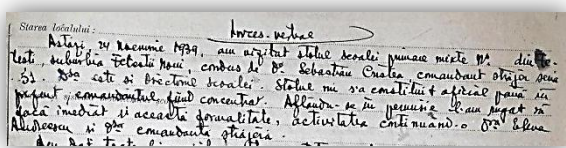 Starea localului:
Proces-verbal
Astăzi, 24 Noemvrie 1939, am vizitat stolul școalei primare mixte Nº. din
testi, suburbia Tetești Noui, condus de Dr. Sebastian comandant străjer seria
51. Dsa este și Directorul școalei. Stolul nu s'a constituit oficial până în
prezent, comandantul fiind concentrat. Aflându-se în permisie l-am rugat să
facă imediat și această formalitate, activitatea continuând-o Dra Elena
Andreescu și Dra comandantă străjeră.